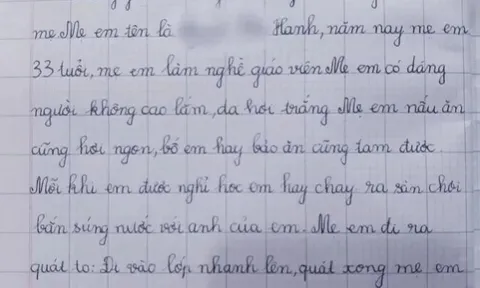 mẹ. Mẹ em tên là Hanh, năm nay mẹ em
33 tuổi, mẹ em làm nghề giáo viên. Mẹ em có dáng
người không cao lắm, da hơi trắng Mẹ em nấu ăn
cũng hơi ngon, bố em hay bảo ăn cũng tam được.
Mỗi khi em được nghỉ học em hay chạy ra sân chơi
bắn súng nước với anh của em. Mẹ em đi ra
quát to: Đi vào lớp nhanh lên, quát xong mẹ em